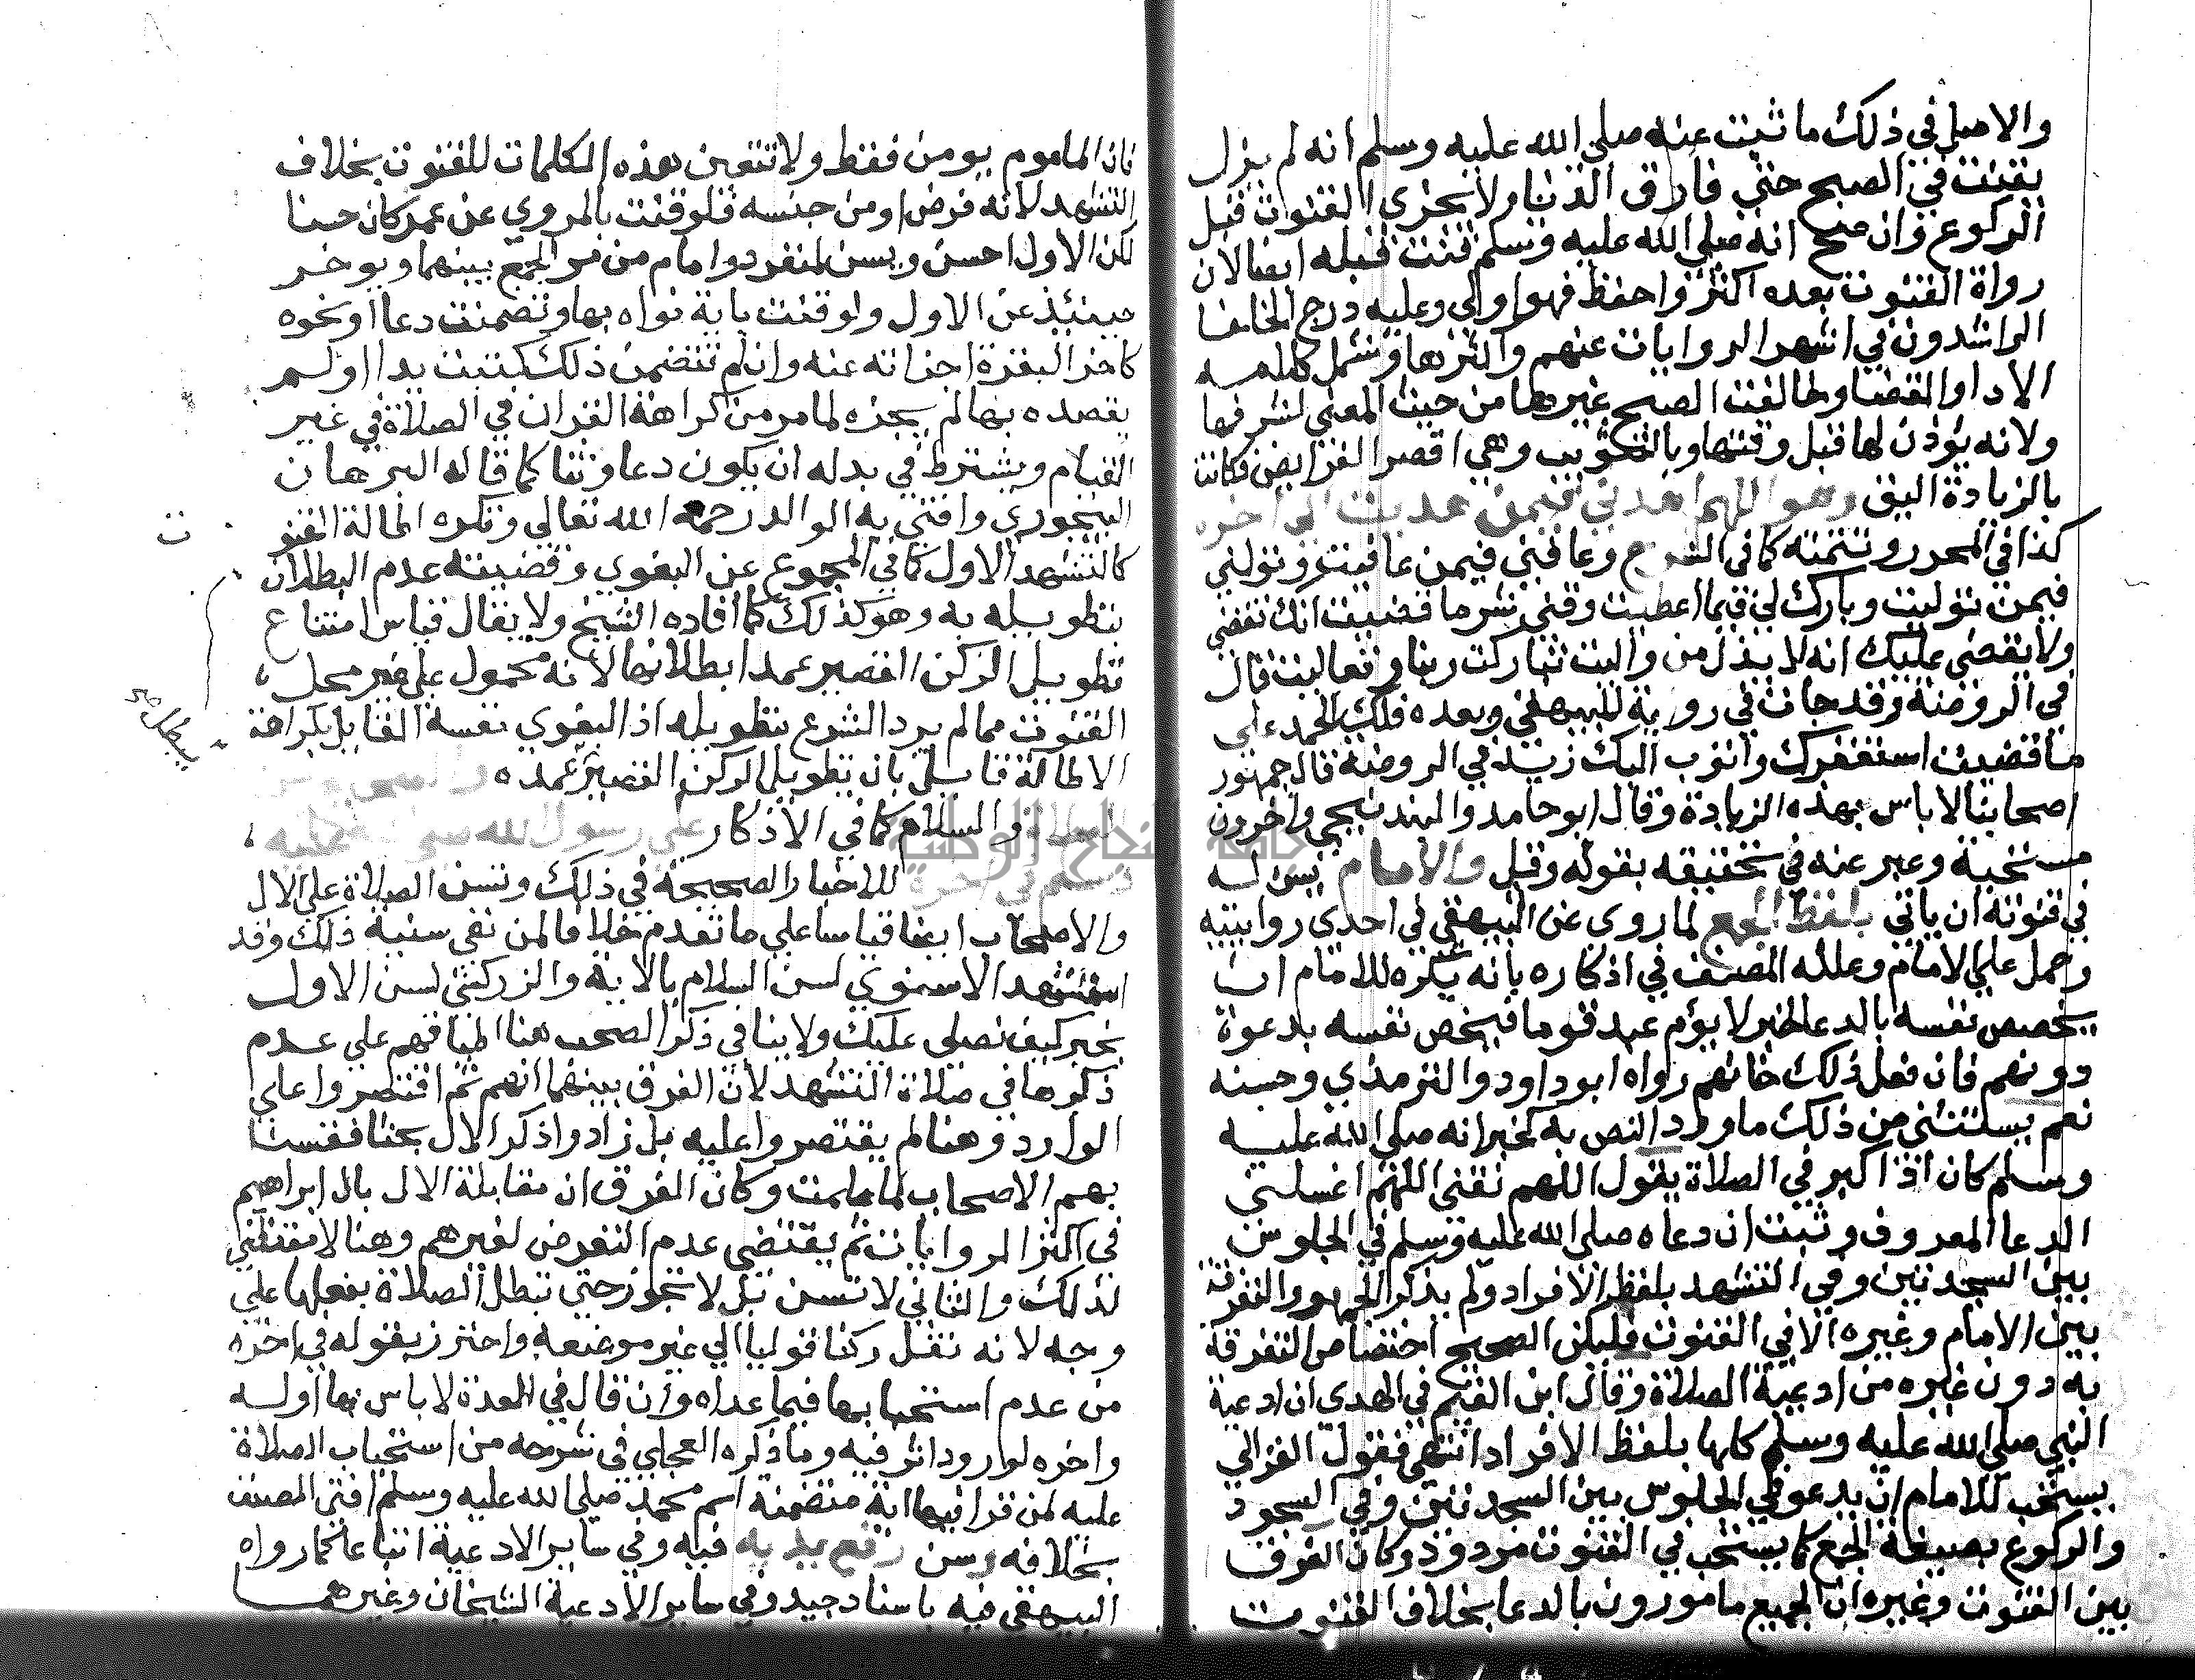 والاصل في ذلك ما ثبت عنه صلي الله عليه وسلم انه لم يزل
يقنت في الصبح حتي فارق الدنيا ولا يجزي القنوت قبل
الركوع وان صح انه صلي الله عليه وسلم قنت قبله ايضا لان
رواة القنوت بعده اكثر واحفظ فهو اولي وعليه درج الخلفا
الراشدون في اشهر الروايات عنهم واكثرها وشمل كلامه
الادا والقضا ولما لفت الصبح غيرها من حيث المعني لشرفها
ولانه يؤذن لها قبل وقتها وبالتثويب وهي اقصر الفرايض فكانت
بالزيادة اليق وهو اللهم اهدني فيمن هديت الي اخره
كذا في المحرر وتتمته كما في الشرح وعافني فيمن عافيت وتولني
فيمن توليت وبارك لي فيما اعطيت وقني شر ما قضيت انك تقضي
ولا يقضي عليك انه لا يذل من واليت تباركت ربنا وتعاليت قال
في الروضة وقد جات في رواية للبيهقي وبعده فلك الحمد علي
ما قضيت استغفرك واتوب اليك زيد في الروضة قال جمهور
اصحابنا لا باس بهذه الزيادة وقال ابو حامد والبندنيجي واخرون
مستحبة وعبر عنه في تحقيقه بقوله وقيل والامام يسن له
في قنوته ان ياتي بلفظ الجمع لما روي عن البيهقي في احدي روايتيه
وحمل علي الامام وعلله المصنف في اذكاره بانه يكره للامام ان
يخصص نفسه بالدعا لخبر لا يؤم عبد قوما فيخص نفسه بدعوة
دونهم فان فعل ذلك خانهم رواه ابو داود والترمذي وحسنه
نعم يستثني من ذلك ما ورد النص به كخبر انه صلي الله عليه
وسلم كان اذا كبر في الصلاة يقول اللهم نقني اللهم اغسلني
الدعا المعروف وثبت ان دعاه صلي الله عليه وسلم في الجلوس
بين السجدتين وفي التشهد بلفظ الافراد ولم يذكر الجمهور التفرقة
بين الامام وغيره الا في القنوت فليكن الصحيح اختصاص التفرقة
به دون غيره من ادعية الصلاة وقال ابن القيم في الهدي ان ادعية
النبي صلي الله عليه وسلم كلها بلفظ الافراد انتهي فقول الغزالي
يستحب للامام ان يدعو في الجلوس بين السجدتين وفي السجود
والركوع بصيغة الجمع كما يستحب في القنوت مردود وكان الفرق
بين القنوت وغيره ان الجميع مامورون بالدعا بخلاف القنوت
فان الماموم يومن فقط ولا تتعين هذه الكلمات للقنوت بخلاف
التشهد لانه فرض او من جنسه فلو قنت بالمروي عن عمر كان حسنا
لكن الاول احسن ويسن لمنفرد وامام من مر الجمع بينهما ويوخر
حينئذ عن الاول ولو قنت باية نواه بها وتضمنت دعا او نحوه
كاخر البقرة اجزاته عنه وان لم تتضمن ذلك كتبت يدا او لم
يقصده بها لم يجزه لما مر من كراهة القران في الصلاة في غير
القيام ويشترط في بدله ان يكون دعا وثنا كما قاله البرهان
البيجوري وافتي به الوالد رحمه الله تعالي وتكره اطالة القنو ت
كالتشهد الاول كما في المجموع عن البغوي وقضيته عدم البطلان
بتطويله به وهو كذلك كما افاده الشيخ ولا يقال قياس امتناع
تطويل الركن القصير عمدا بطلانها لانه محمول علي غير محل
القنوت مما لم يرد الشرع بتطويله اذ البغوي نفسه القايل بكراهة
الاطالة قايل بان تطويل الركن القصير عمده
يبطل
والسلام كما في الاذكار علي رسول الله صلي الله عليه
وسلم في اخره للاخبار الصحيحة في ذلك وتسن الصلاة علي الال
والاصحاب ايضا قياسا علي ما تقدم خلافا لمن نفي سنية ذلك وقد
استشهد الاسنوي لسن السلام بالاية والزركشي لسن الاول
بخبر كيف نصلي عليك ولا ينافي ذكر الصحب هنا اطباقهم علي عدم
ذكرها في صلاة التشهد لان الفرق بينهما انهم ثم اقتصروا علي
الوارد وهنا لم يقتصروا عليه بل زادوا ذكر الال بحثا فقسنا
بهم الاصحاب لما علمت وكان الفرق ان مقابلة الال بال ابراهيم
في اكثر الروايات ثم يقتضي عدم التعرض لغيرهم وهنا لا مقتضي
لذلك والثاني لا تسن بل لا تجوز حتي تبطل الصلاة بفعلها علي
وجه لانه نقل ركنا قوليا الي غير موضعه واحترز بقوله في اخره
من عدم استحبابها فيما عداه وان قال في العدة لا باس بها اوله
واخره لورود اثر فيه وما ذكره العجلي في شرحه من استحباب الصلاة
عليه لمن قرا فيها اية متضمنة اسم محمد صلي الله عليه وسلم افتي المصنف
بخلافه وسن رفع يديه فيه وفي ساير الادعية اتباعا كما رواه
البيهقي فيه باسناد جيد وفي ساير الادعية الشيخان وغيرهما
جامعة النجاح الوطنية